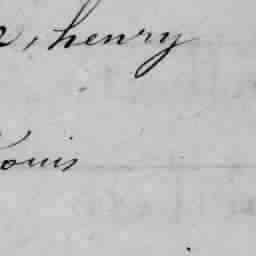 , henry
Louis